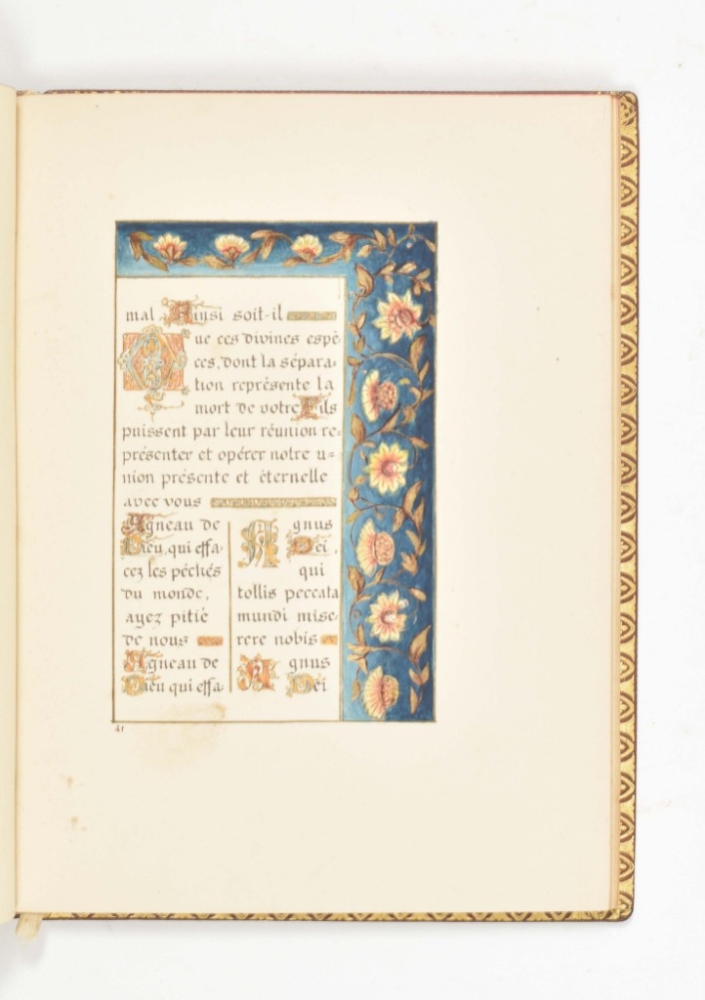 mal Ainsi soit-il
Que ces divines espè-
ces, dont la sépara-
tion représente la
mort de votre Fils
puissent par leur réunion re-
présenter et opérer notre u-
nion présente et éternelle
avec vous
Agneau de
Dieu, qui effa-
cez les péchés
du monde,
ayez pitié
de nous
Agneau de
Dieu qui effa-
Agnus
Dei,
qui
tollis peccata
mundi mise-
rere nobis
Agnus
Dei
41